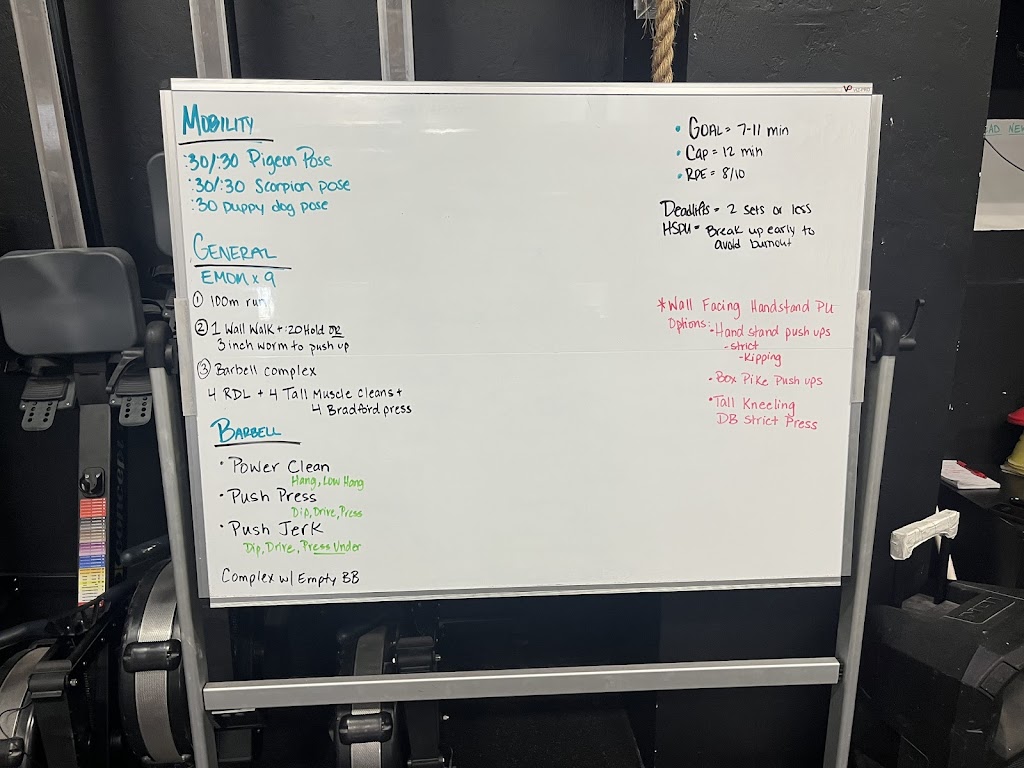 MOBILITY
:30/:30 Pigeon Pose
:30/:30 Scorpion pose
:30 puppy dog pose
GENERAL
EMOM x 9
① 100m run
② 1 Wall Walk + :20 Hold OR
3 inch worm to push up
③ Barbell complex
4 RDL + 4 Tall Muscle Cleans +
4 Bradford press
BARBELL
• Power Clean
Hang, Low Hang
• Push Press
Dip, Drive, Press
• Push Jerk
Dip, Drive, Press Under
Complex w/ Empty BB
• GOAL = 7-11 min
• CAP = 12 min
• RPE = 8/10
Deadlifts = 2 sets or less
HSPU = Break up early to
avoid burnout
*Wall Facing Handstand PU
Options: - Hand stand push ups
- strict
- Kipping
• Box Pike Push ups
• Tall Kneeling
DB Strict Press
concept